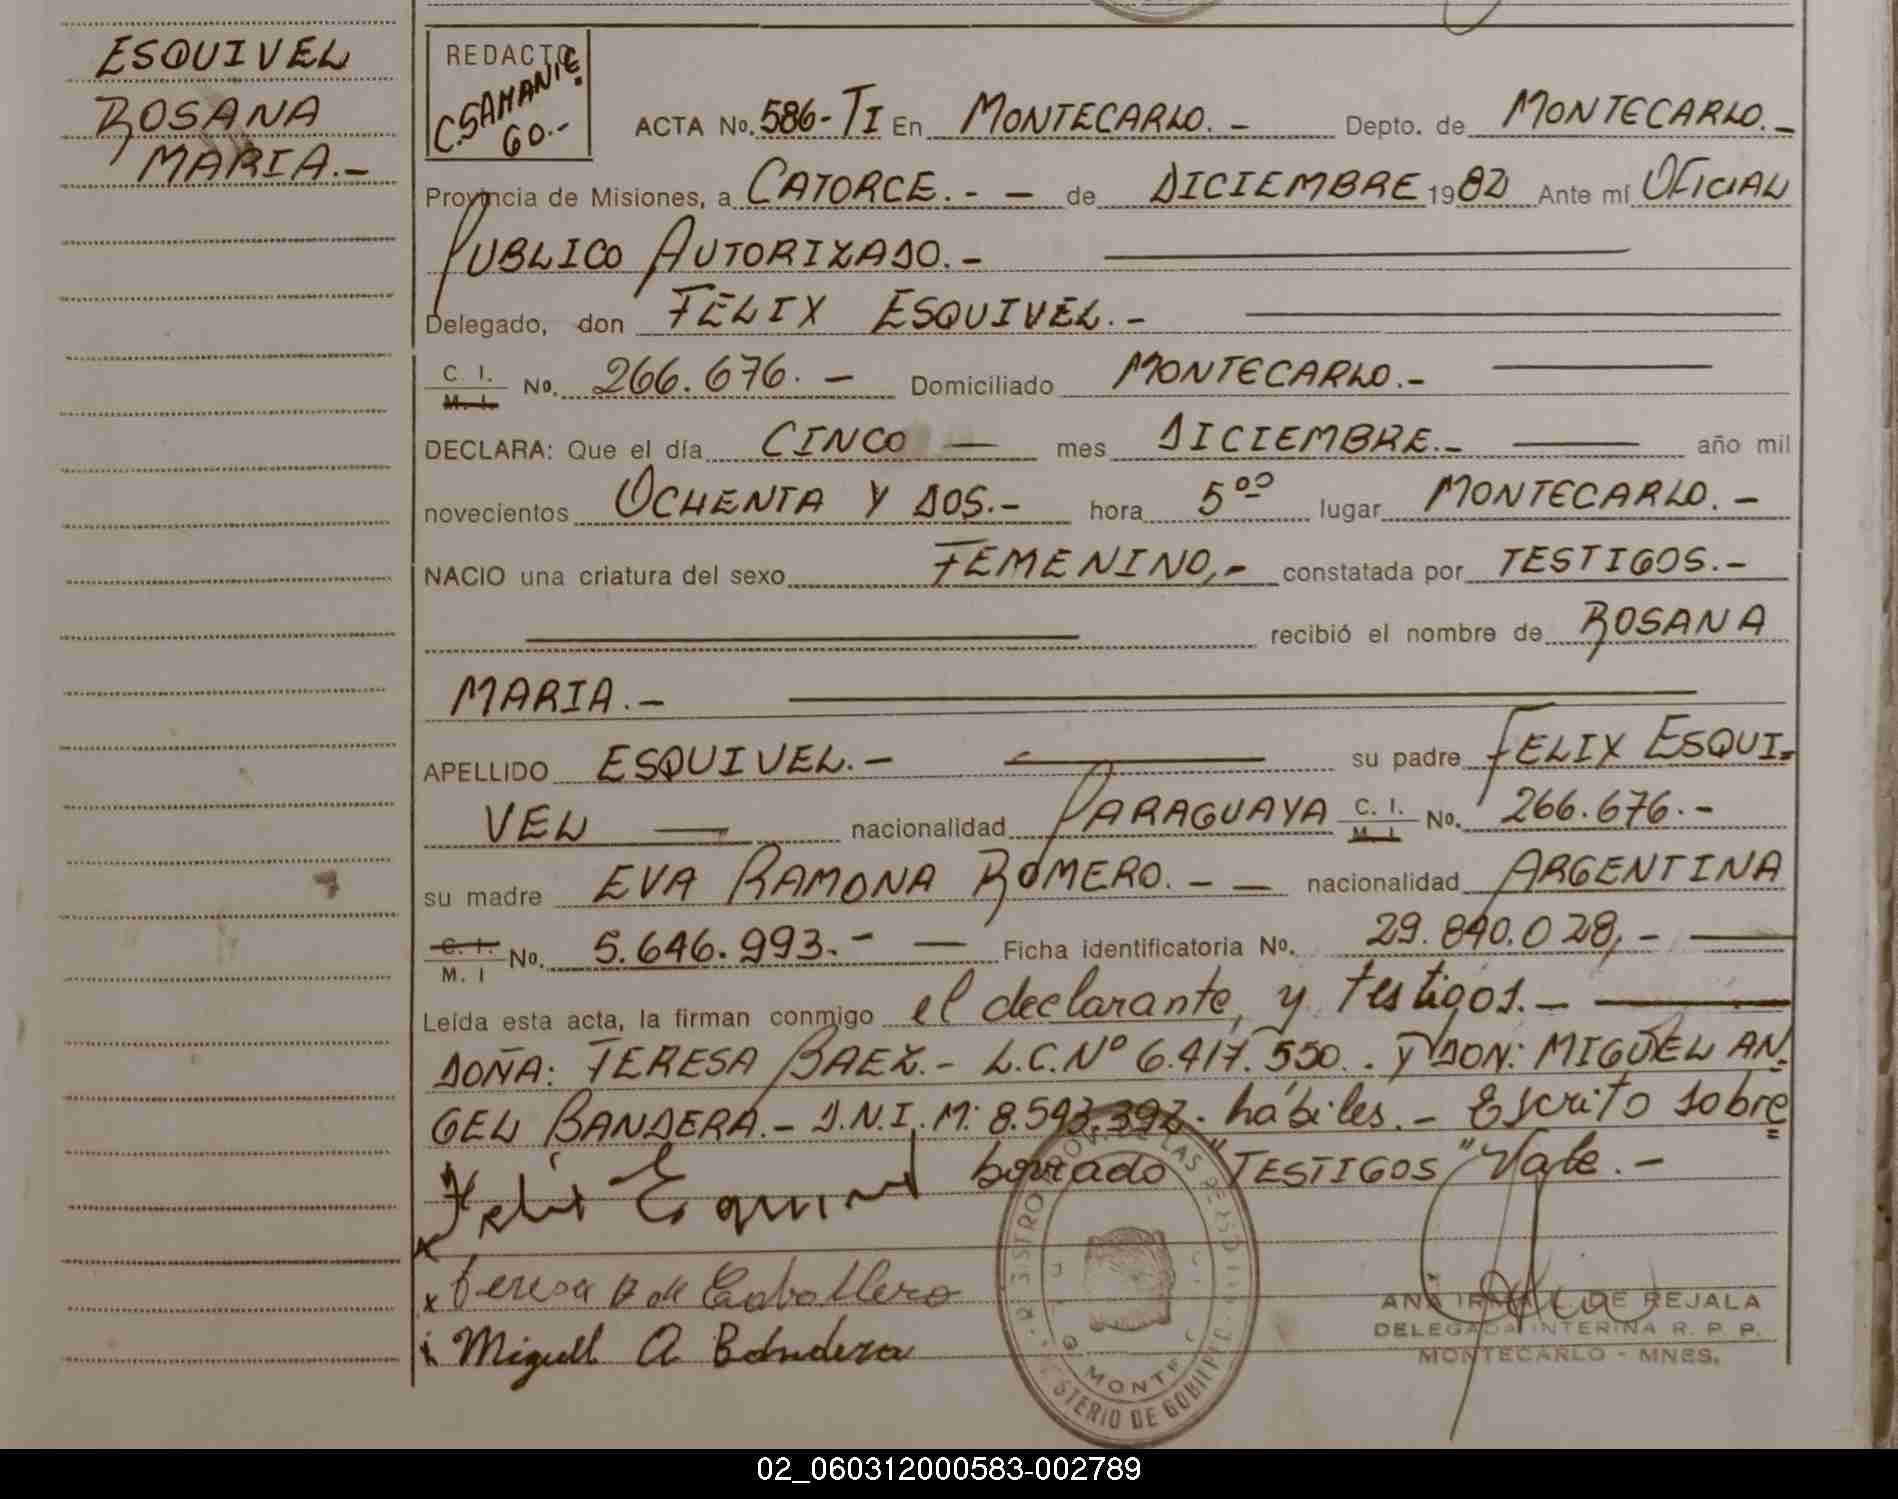 ESQUIVEL
ROSANA
MARIA.-
REDACTO
C.SAMANIE.
60.-
ACTA No. 586-TI En MONTECARLO.- Depto. de MONTECARLO.-
Provincia de Misiones, a CATORCE.- - de DICIEMBRE 1982 Ante mí OFICIAL
PUBLICO AUTORIZADO.-
Delegado, don FELIX ESQUIVEL.-
C. I.
M. I. No. 266.676.- Domiciliado MONTECARLO.-
DECLARA: Que el día CINCO — mes DICIEMBRE.- — año mil
novecientos OCHENTA Y DOS.- hora 5⁰⁰ lugar MONTECARLO.-
NACIO una criatura del sexo FEMENINO,- constatada por TESTIGOS.-
recibió el nombre de ROSANA
MARIA.-
APELLIDO ESQUIVEL.- su padre FELIX ESQUI=
VEL — nacionalidad PARAGUAYA C. I.
M. I. No. 266.676.-
su madre EVA RAMONA ROMERO.- - nacionalidad ARGENTINA
C. I.
M. I No. 5.646.993.- — Ficha identificatoria No. 29.840.028,-
Leída esta acta, la firman conmigo el declarante, y testigos.-
DOÑA: TERESA BAEZ.- L.C.Nº 6.417.550.. Y DON: MIGUEL AN.
GEL BANDERA.- D.N.I.M: 8.593.392.- hábiles.- Escrito sobre=
borrado "TESTIGOS" Vale.-
Felix Esquivel
x teresa B de Caballero
x Miguel A Bandera
REGISTRO PROV. DE LAS PERSONAS
MINISTERIO DE GOBIERNO
MONTE
ANA IRMA L. DE REJALA
DELEGADA INTERINA R. P. P.
MONTECARLO - MNES.
02_060312000583-002789